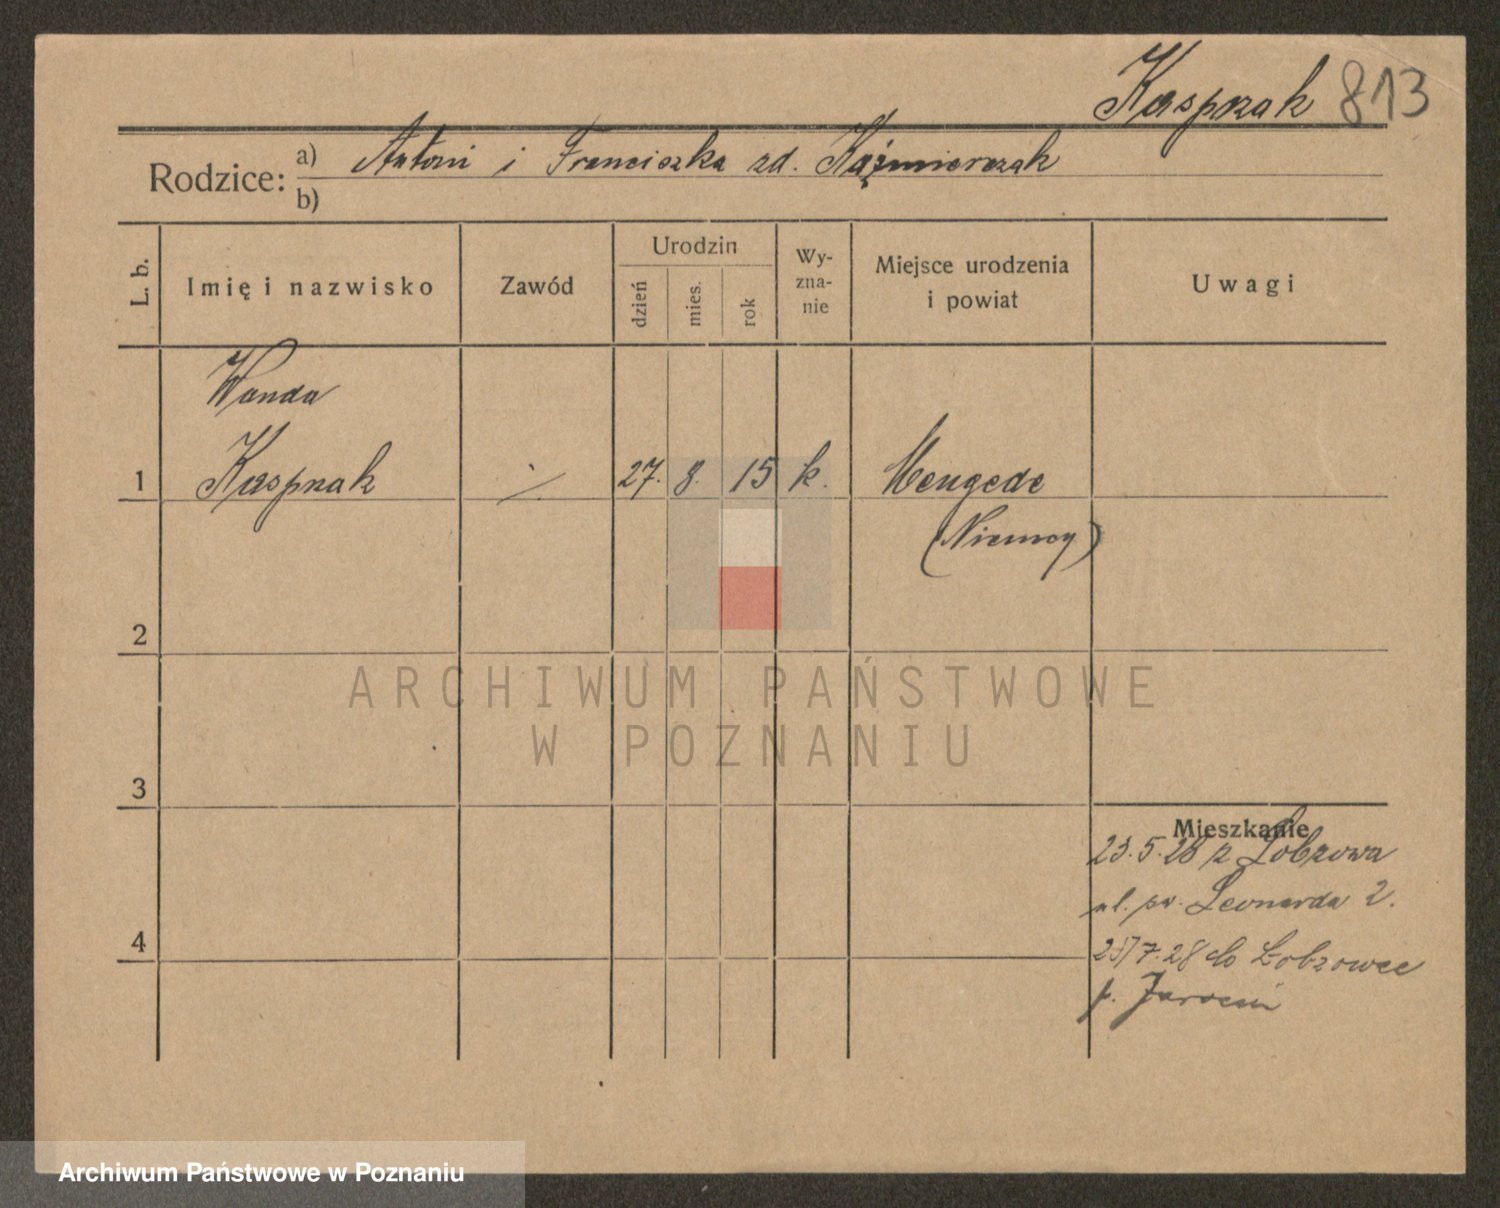 Kasprzak 813
Rodzice: a) Antoni i Franciszka zd. Kaźmierczak
b)
L. b.
Imię i nazwisko
Zawód
Urodzin
dzień
mies.
rok
Wy-
zna-
nie
Miejsce urodzenia
i powiat
Uwagi
Wanda
1 Kasprzak 27. 8. 15 k. Mengede
(Niemcy)
2
ARCHIWUM PAŃSTWOWE
W POZNANIU
3
Mieszkanie
23.5.28 z Łobzowa
ul. św. Leonarda 2.
4
7.28 do Łobzowec
p. Jarocin
Archiwum Państwowe w Poznaniu